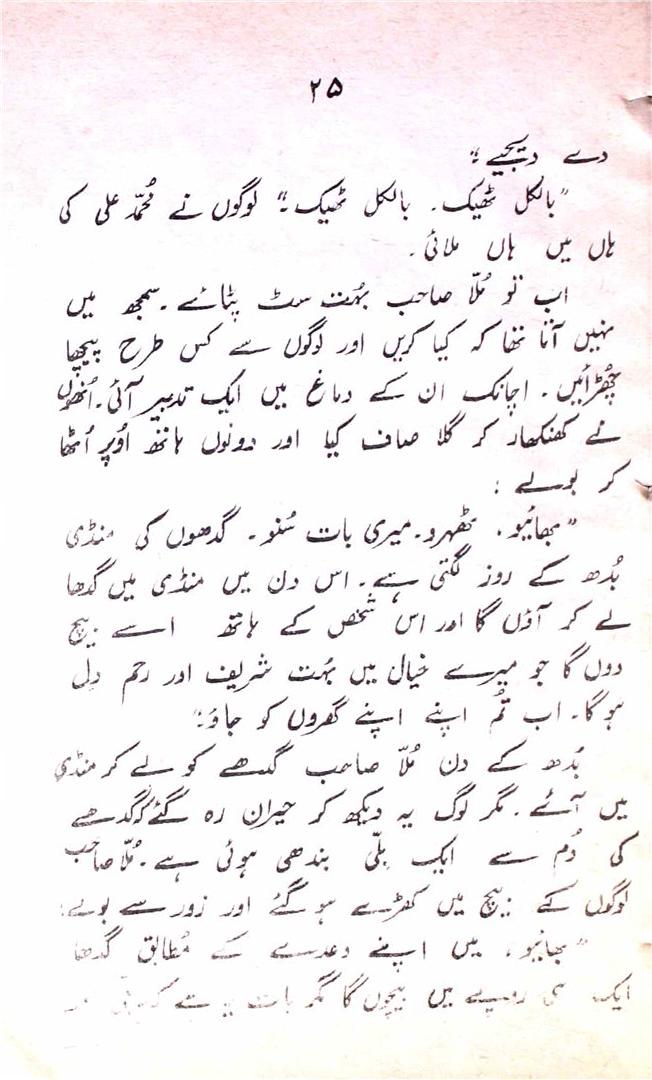 ۲۵
دے دیجیے"
"بالکل ٹھیک۔ بالکل ٹھیک۔" لوگوں نے مُحمّد علی کی
ہاں میں ہاں ملائی۔
اب تو مُلّا صاحب بہُت سٹ پٹائے۔ سمجھ میں
نہیں آتا تھا کہ کیا کریں اور لوگوں سے کس طرح پیچھا
چھُڑائیں۔ اچانک ان کے دماغ میں ایک تدبیر آئی۔ اُنھوں
نے کھنکھار کر گلا صاف کیا اور دونوں ہاتھ اُوپر اُٹھا
کر بولے :
"بھائیو، ٹھہرو۔ میری بات سُنو۔ گدھوں کی منڈی
بُدھ کے روز لگتی ہے۔ اس دن میں منڈی میں گدھا
لے کر آؤں گا اور اس شخص کے ہاتھ اسے بیچ
دوں گا جو میرے خیال میں بہُت شریف اور رحم دِل
ہو گا۔ اب تُم اپنے اپنے گھروں کو جاؤ۔"
بُدھ کے دن مُلّا صاحب گدھے کو لے کر منڈی
میں آئے۔ مگر لوگ یہ دیکھ کر حیران رہ گئے کہ گدھے
کی دُم سے ایک بلّی بندھی ہوئی ہے۔ مُلّا صاحب
لوگوں کے بیچ میں کھڑے ہو گئے اور زور سے بولے:
"بھائیو، میں اپنے وعدے کے مُطابق گدھا
ایک ہی روپے میں بیچوں گا مگر بات یہ ہے کہ